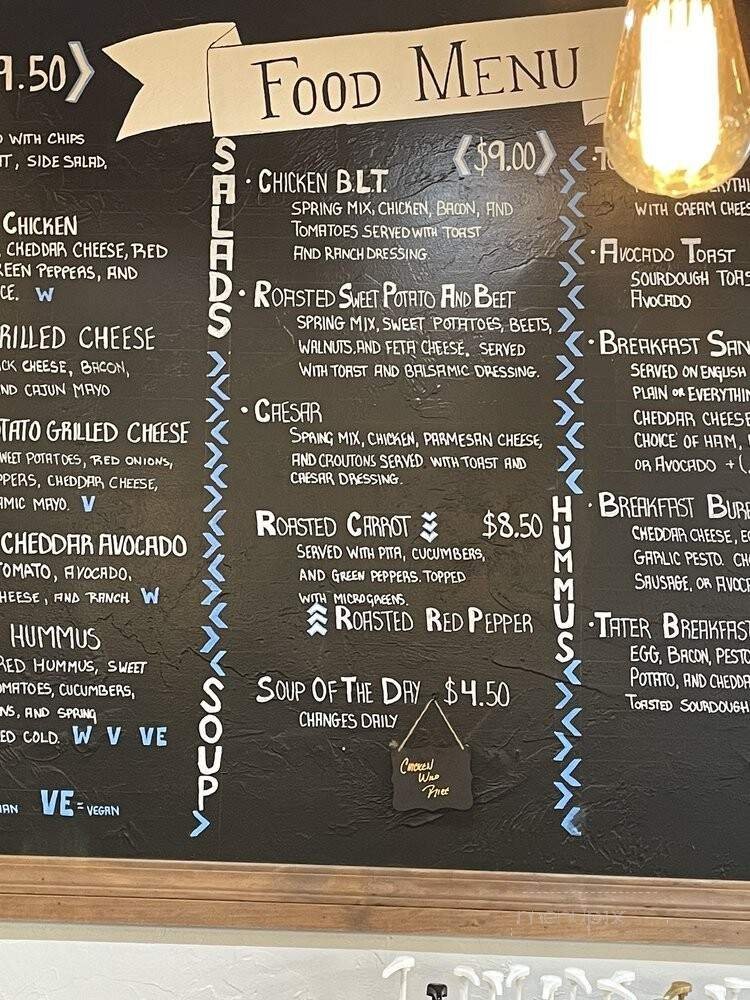 9.50
FOOD MENU
WITH CHIPS
SIDE SALAD,
CHICKEN
CHEDDAR CHEESE, RED
PEPPERS, AND
W
GRILLED CHEESE
CHEESE, BACON,
AND CAJUN MAYO
GRILLED CHEESE
SWEET POTATOES, RED ONIONS,
CHEDDAR CHEESE,
MAYO. V
CHEDDAR AVOCADO
TOMATO, AVOCADO,
CHEESE, AND RANCH W
HUMMUS
HUMMUS, SWEET
TOMATOES, CUCUMBERS,
AND SPRING
COLD. W V VE
VE = VEGAN
SALADS
$9.00
• CHICKEN B.L.T.
SPRING MIX, CHICKEN, BACON, AND
TOMATOES SERVED WITH TOAST
AND RANCH DRESSING.
• ROASTED SWEET POTATO AND BEET
SPRING MIX, SWEET POTATOES, BEETS,
WALNUTS, AND FETA CHEESE. SERVED
WITH TOAST AND BALSAMIC DRESSING.
• CAESAR
SPRING MIX, CHICKEN, PARMESAN CHEESE,
AND CROUTONS SERVED WITH TOAST AND
CAESAR DRESSING.
HUMMUS
ROASTED CARROT $8.50
SERVED WITH PITA, CUCUMBERS,
AND GREEN PEPPERS. TOPPED
WITH MICROGREENS.
ROASTED RED PEPPER
SOUP
SOUP OF THE DAY $4.50
CHANGES DAILY
CHICKEN
WILD
RICE
WITH CREAM
• AVOCADO TOAST
SOURDOUGH
AVOCADO
• BREAKFAST
SERVED ON ENGLISH
PLAIN OR
CHEDDAR CHEESE
CHOICE OF HAM,
OR AVOCADO +
• BREAKFAST
CHEDDAR CHEESE,
GARLIC PESTO.
SAUSAGE, OR
• TATER BREAKFAST
EGG, BACON, PESTO
POTATO, AND
TOASTED SOURDOUGH
menupix